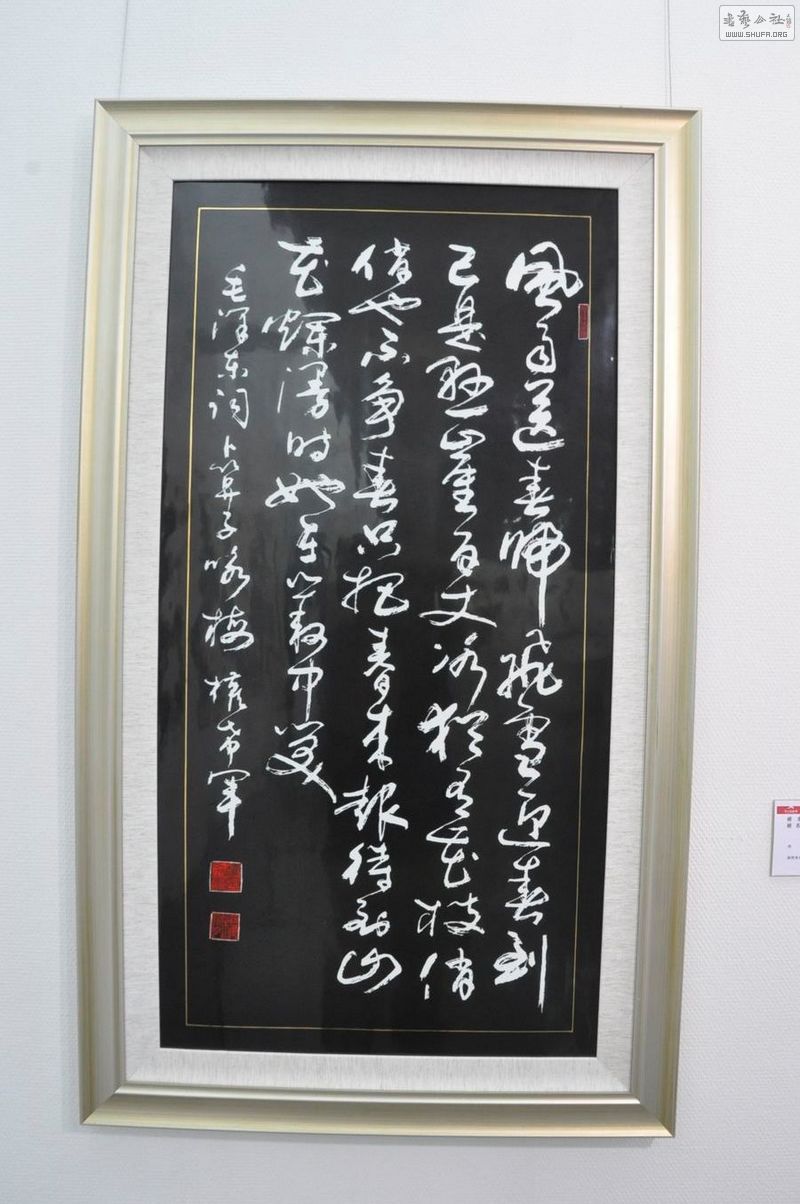 風雨送春归飛雪迎春到
已是懸崖百丈冰犹有花枝俏
俏也不争春只把春来報待到山
花爛漫時她在丛中笑
毛泽东词卜算子咏梅
书艺公社
WWW.SHUFA.ORG